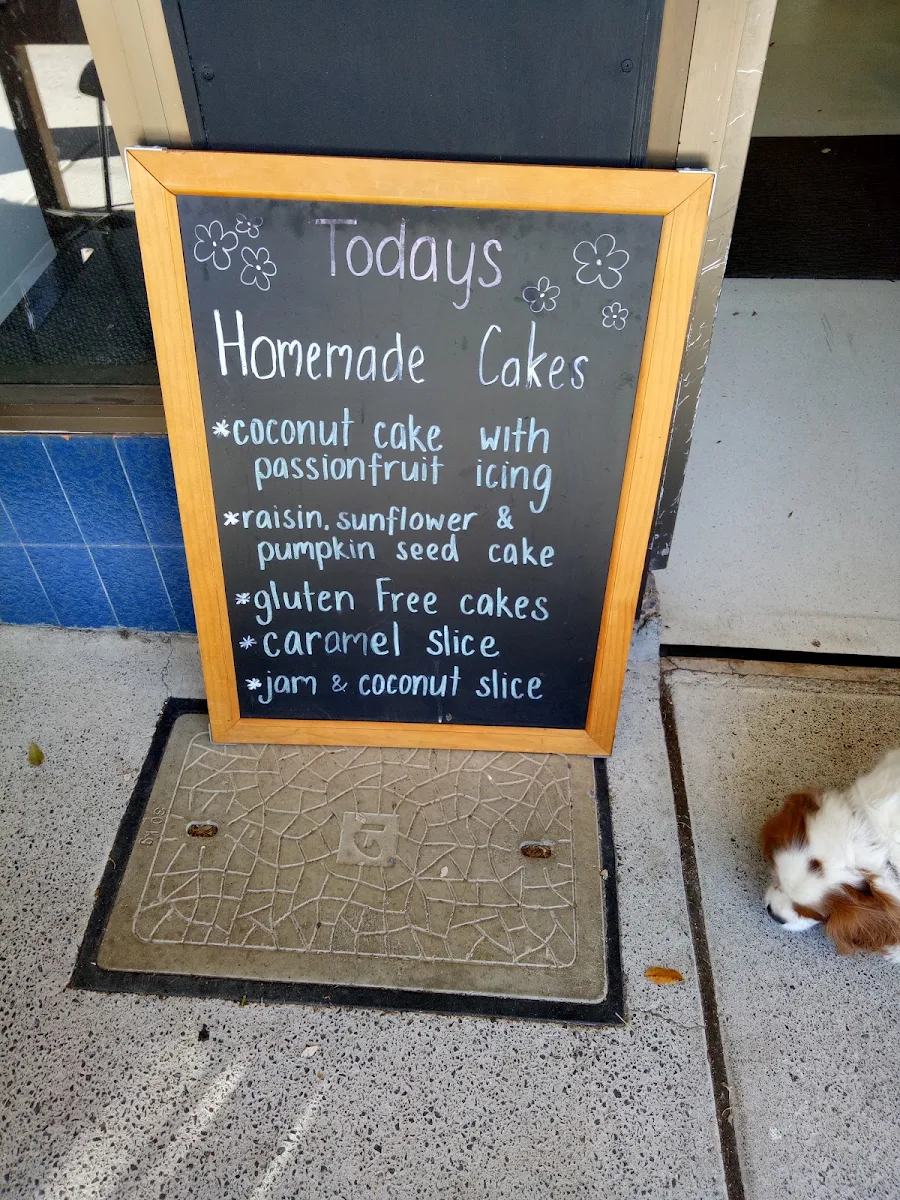 Todays
Homemade Cakes
*coconut cake with
passionfruit icing
*raisin, sunflower &
pumpkin seed cake
*gluten Free cakes
*caramel slice
*jam & coconut slice